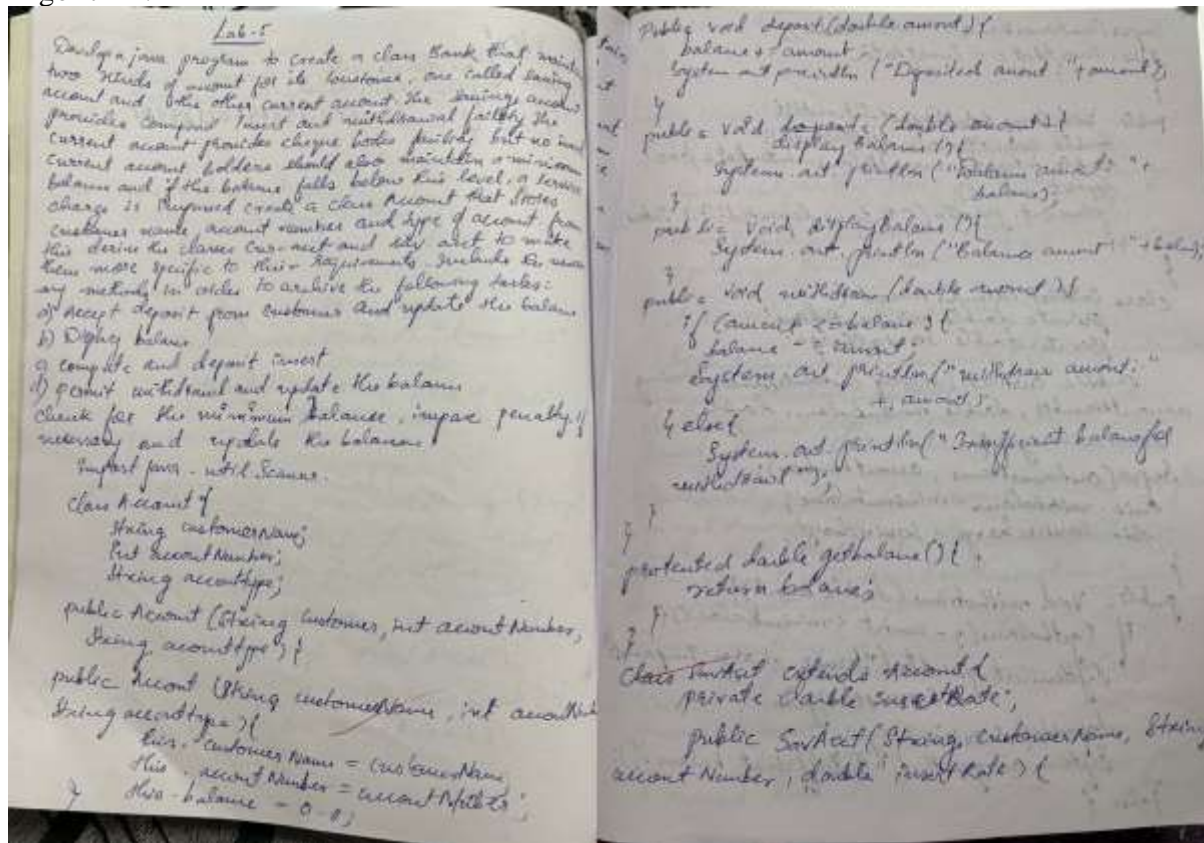 Lab-5
Develop a java program to create a class Bank that maintain
two kinds of account for its customer, one called saving
account and the other current account. The savings account
provides compound Insert and withdrawal facility. the
current account provides cheque book facility but no
current account holders should also maintain a minimum
balance and if the balance falls below this level, a service
charge is imposed create a class Account that stores
customer name, account number and type of account from
this derive the classes Cur-acct and Sav acct to make
them more specific to their requirements. Include the
methods in order to achieve the following tasks:
a) Accept deposit from customer and update the balance
b) Display balance
c) compute and deposit insert
d) permit withdrawal and update the balance
check for the minimum balance, impose penalty if
necessary and update the balance
import java.util.Scanner.
class Account {
String customerName;
int accountNumber;
String accounttype;
public Account (String customer, int accountNumber,
String accounttype) {
public Account (String customerName, int
String accounttype) {
this. customerName = customerName,
this. accountNumber =
this-balance = 0.0;
}
Public void deposit(double amount) {
balance + amount
System out println ("Deposited amount: "+ amount);
}
public void (double amount) {
display balance () {
System. out. println (" amount: " +
balance);
}
public Void displayBalance () {
System. out. println ("Balance amount: "+
}
public void withdraw (double amount) {
if (amount <= balance) {
balance -= amount,
System. out. println ("withdraw amount: "
+ amount);
} else {
System. out. println ("Insufficient balance for
");
}
}
protected double getbalance () {
return balance;
}
}
Class SavAcct extends Account {
private double insertRate;
public SavAcct (String, customerName, String
account Number, double insertRate) {